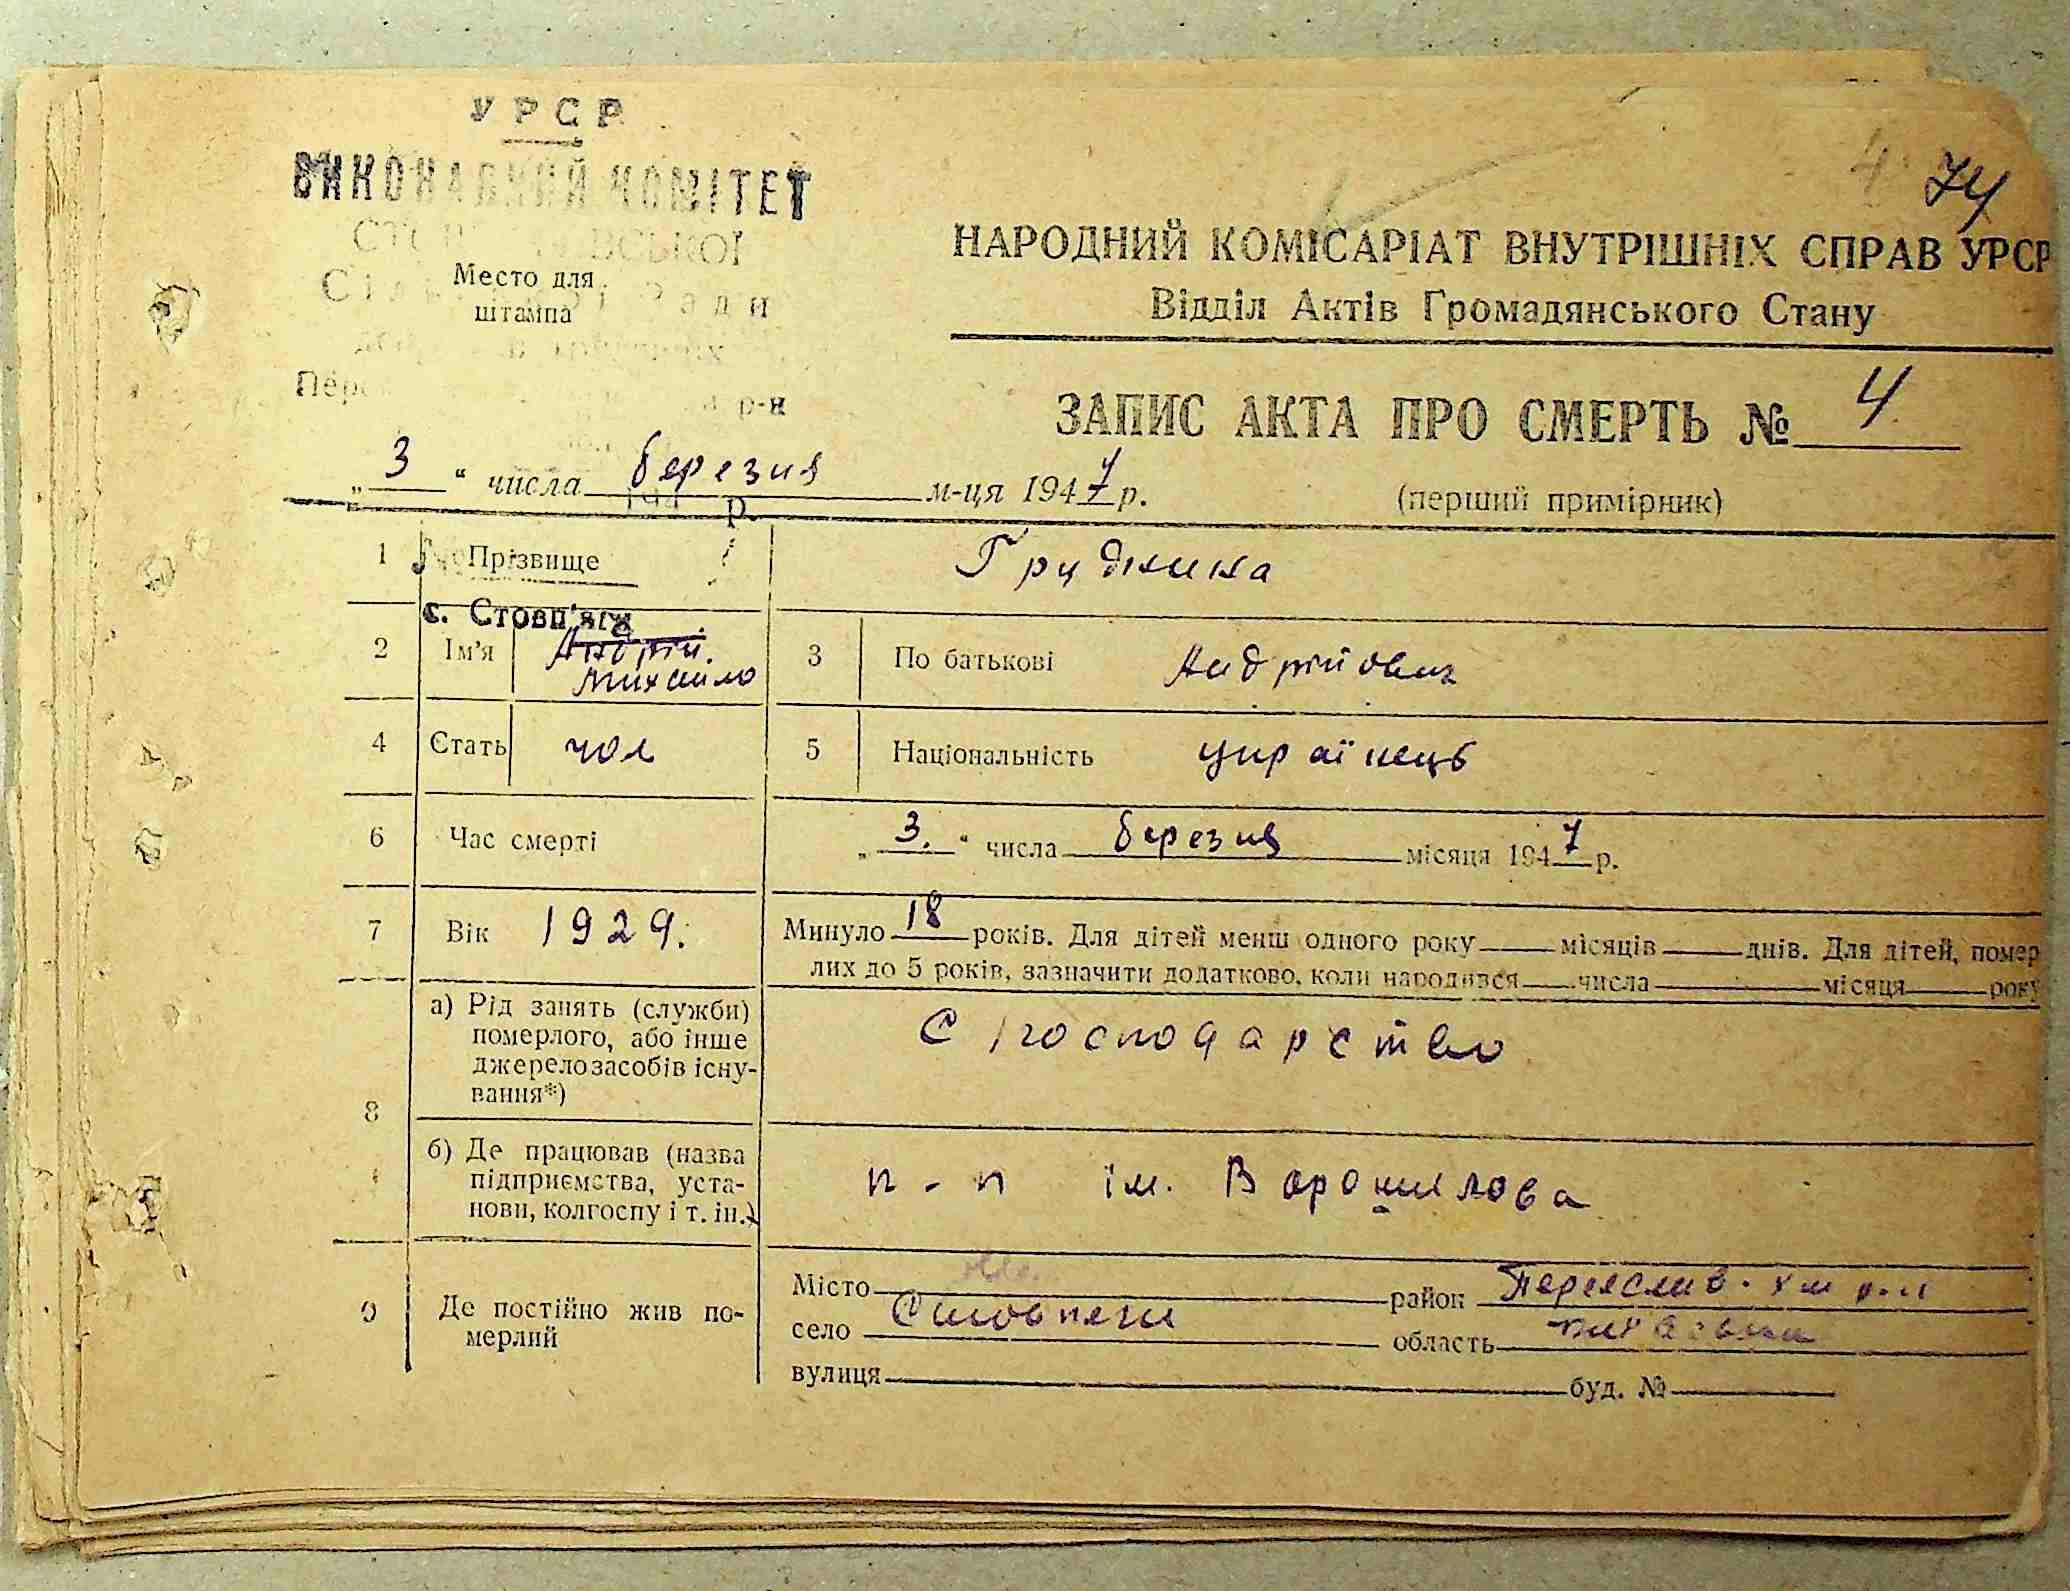 УРСР
ВИКОНАВЧИЙ КОМІТЕТ
74
НАРОДНИЙ КОМІСАРІАТ ВНУТРІШНІХ СПРАВ УРСР
Место для
штампа
Відділ Актів Громадянського Стану
р-н
ЗАПИС АКТА ПРО СМЕРТЬ № 4
„ 3 “ числа березня м-ця 1947 р.
(перший примірник)
1 Прізвище
с. Стовп'яги
2 Ім'я Андрій. Михайло
3 По батькові Андрійович
4 Стать чол
5 Національність українець
6 Час смерті „ 3. “ числа березня місяця 1947 р.
7 Вік 1929. Минуло 18 років. Для дітей менш одного року місяців днів. Для дітей, помер
лих до 5 років, зазначити додатково, коли народився числа місяця року
8 а) Рід занять (служби)
померлого, або інше
джерело засобів існу-
вання*)
С/господарство
б) Де працював (назва
підприємства, уста-
нови, колгоспу і т. ін.)
ім. Ворошилова
9 Де постійно жив по-
мерлий
Місто район Переяслав-Хм р-н
село Стовпяги область
вулиця буд. №